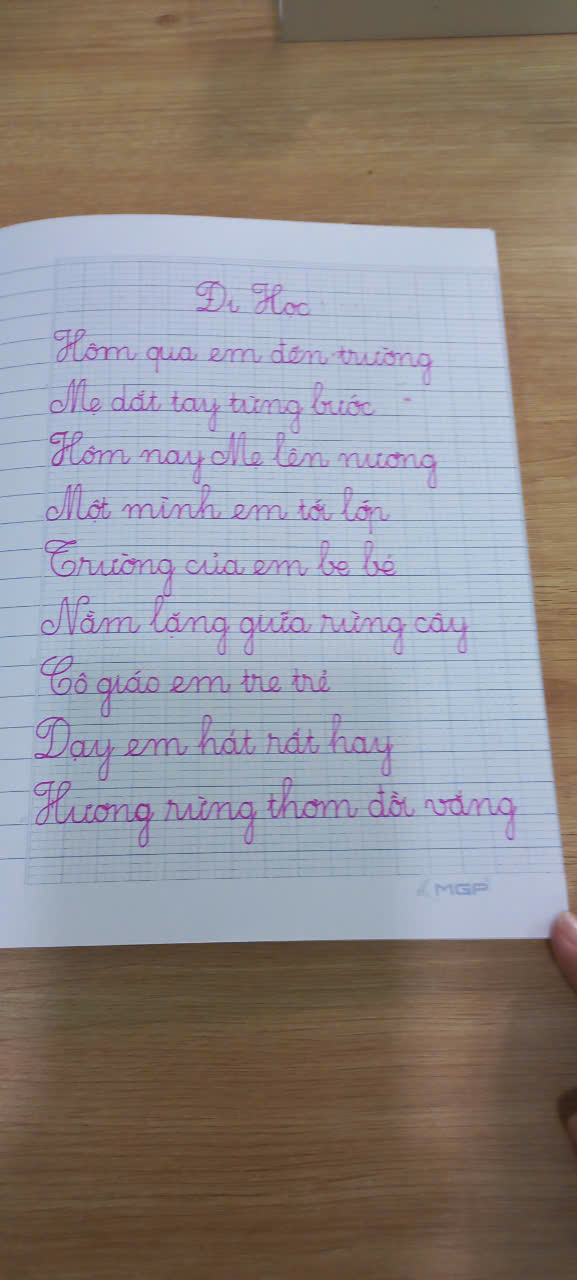 Đi Học
Hôm qua em đến trường
Mẹ dắt tay từng bước
Hôm nay Mẹ lên nương
Một mình em tới lớp
Trường của em be bé
Nằm lặng giữa rừng cây
Cô giáo em tre trẻ
Dạy em hát rất hay
Hương rừng thơm đồi vắng
MGP